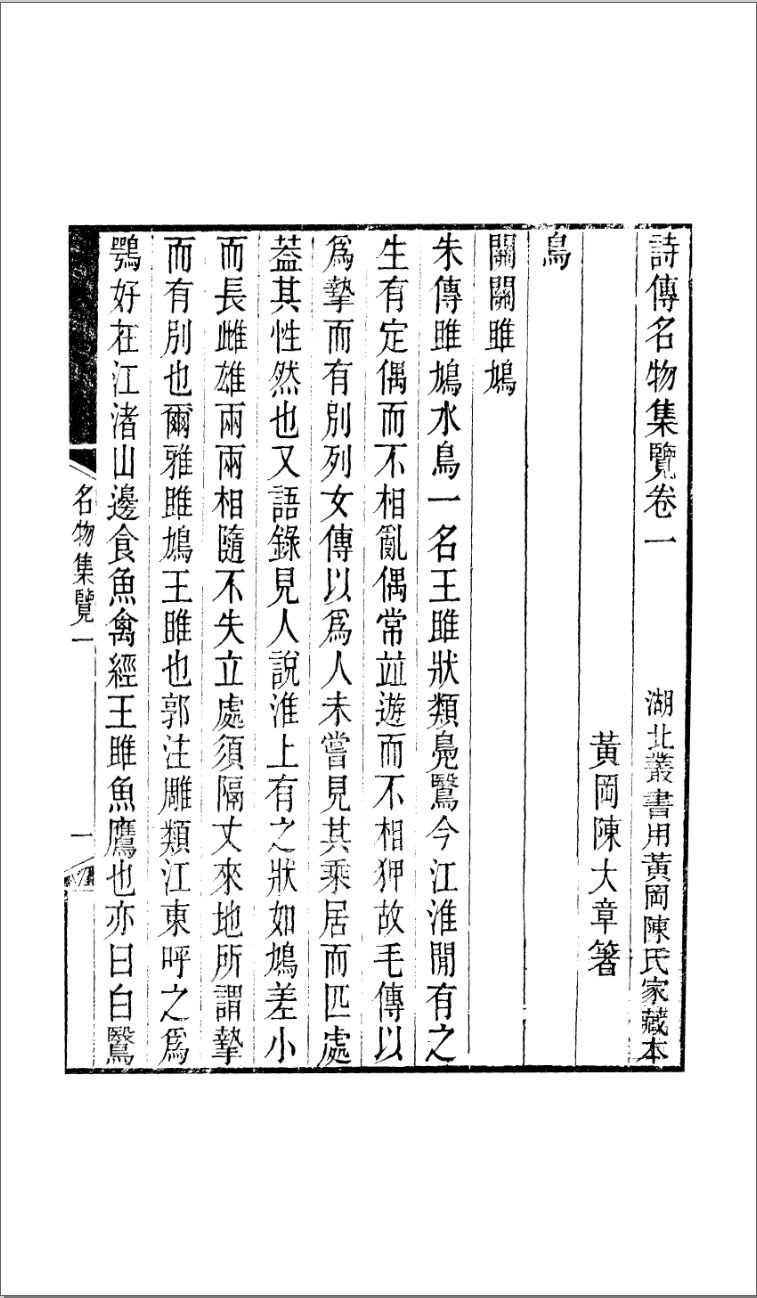 詩傳名物集覽卷一
湖北叢書用黃岡陳氏家藏本
黃岡陳大章箸
鳥
關關雎鳩
朱傳雎鳩水鳥一名王雎狀類鳧鷖今江淮閒有之
生有定偶而不相亂偶常並遊而不相狎故毛傳以
爲摯而有別列女傳以爲人未嘗見其乘居而匹處
葢其性然也又語錄見人說淮上有之狀如鳩差小
而長雌雄兩兩相隨不失立處須隔丈來地所謂摯
而有別也爾雅雎鳩王雎也郭注雕類江東呼之爲
鶚好在江渚山邊食魚禽經王雎魚鷹也亦曰白鷖
名物集覽一
一